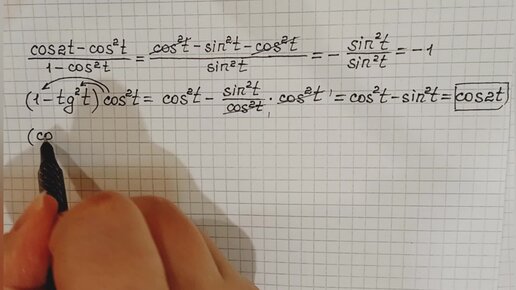 (cos2t - cos²t)/(1 - cos²t) = (cos²t - sin²t - cos²t)/sin²t = - sin²t/sin²t = -1
(1 - tg²t) cos²t = cos²t - sin²t/cos²t · cos²t = cos²t - sin²t = cos2t
(co